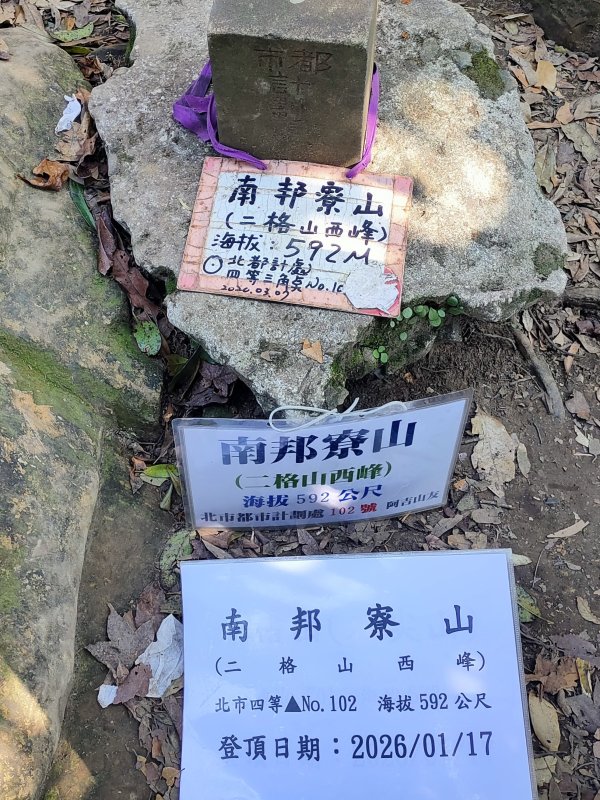 市都
南邦寮山
(二格山西峰)
海拔:592M
北都計處
四等三角点No.10
2020.03.07
南邦寮山
(二格山西峰)
海拔592公尺
北市都市計劃處102號 阿吉山友
南邦寮山
(二格山西峰)
北市四等▲No.102 海拔592公尺
登頂日期：2026/01/17